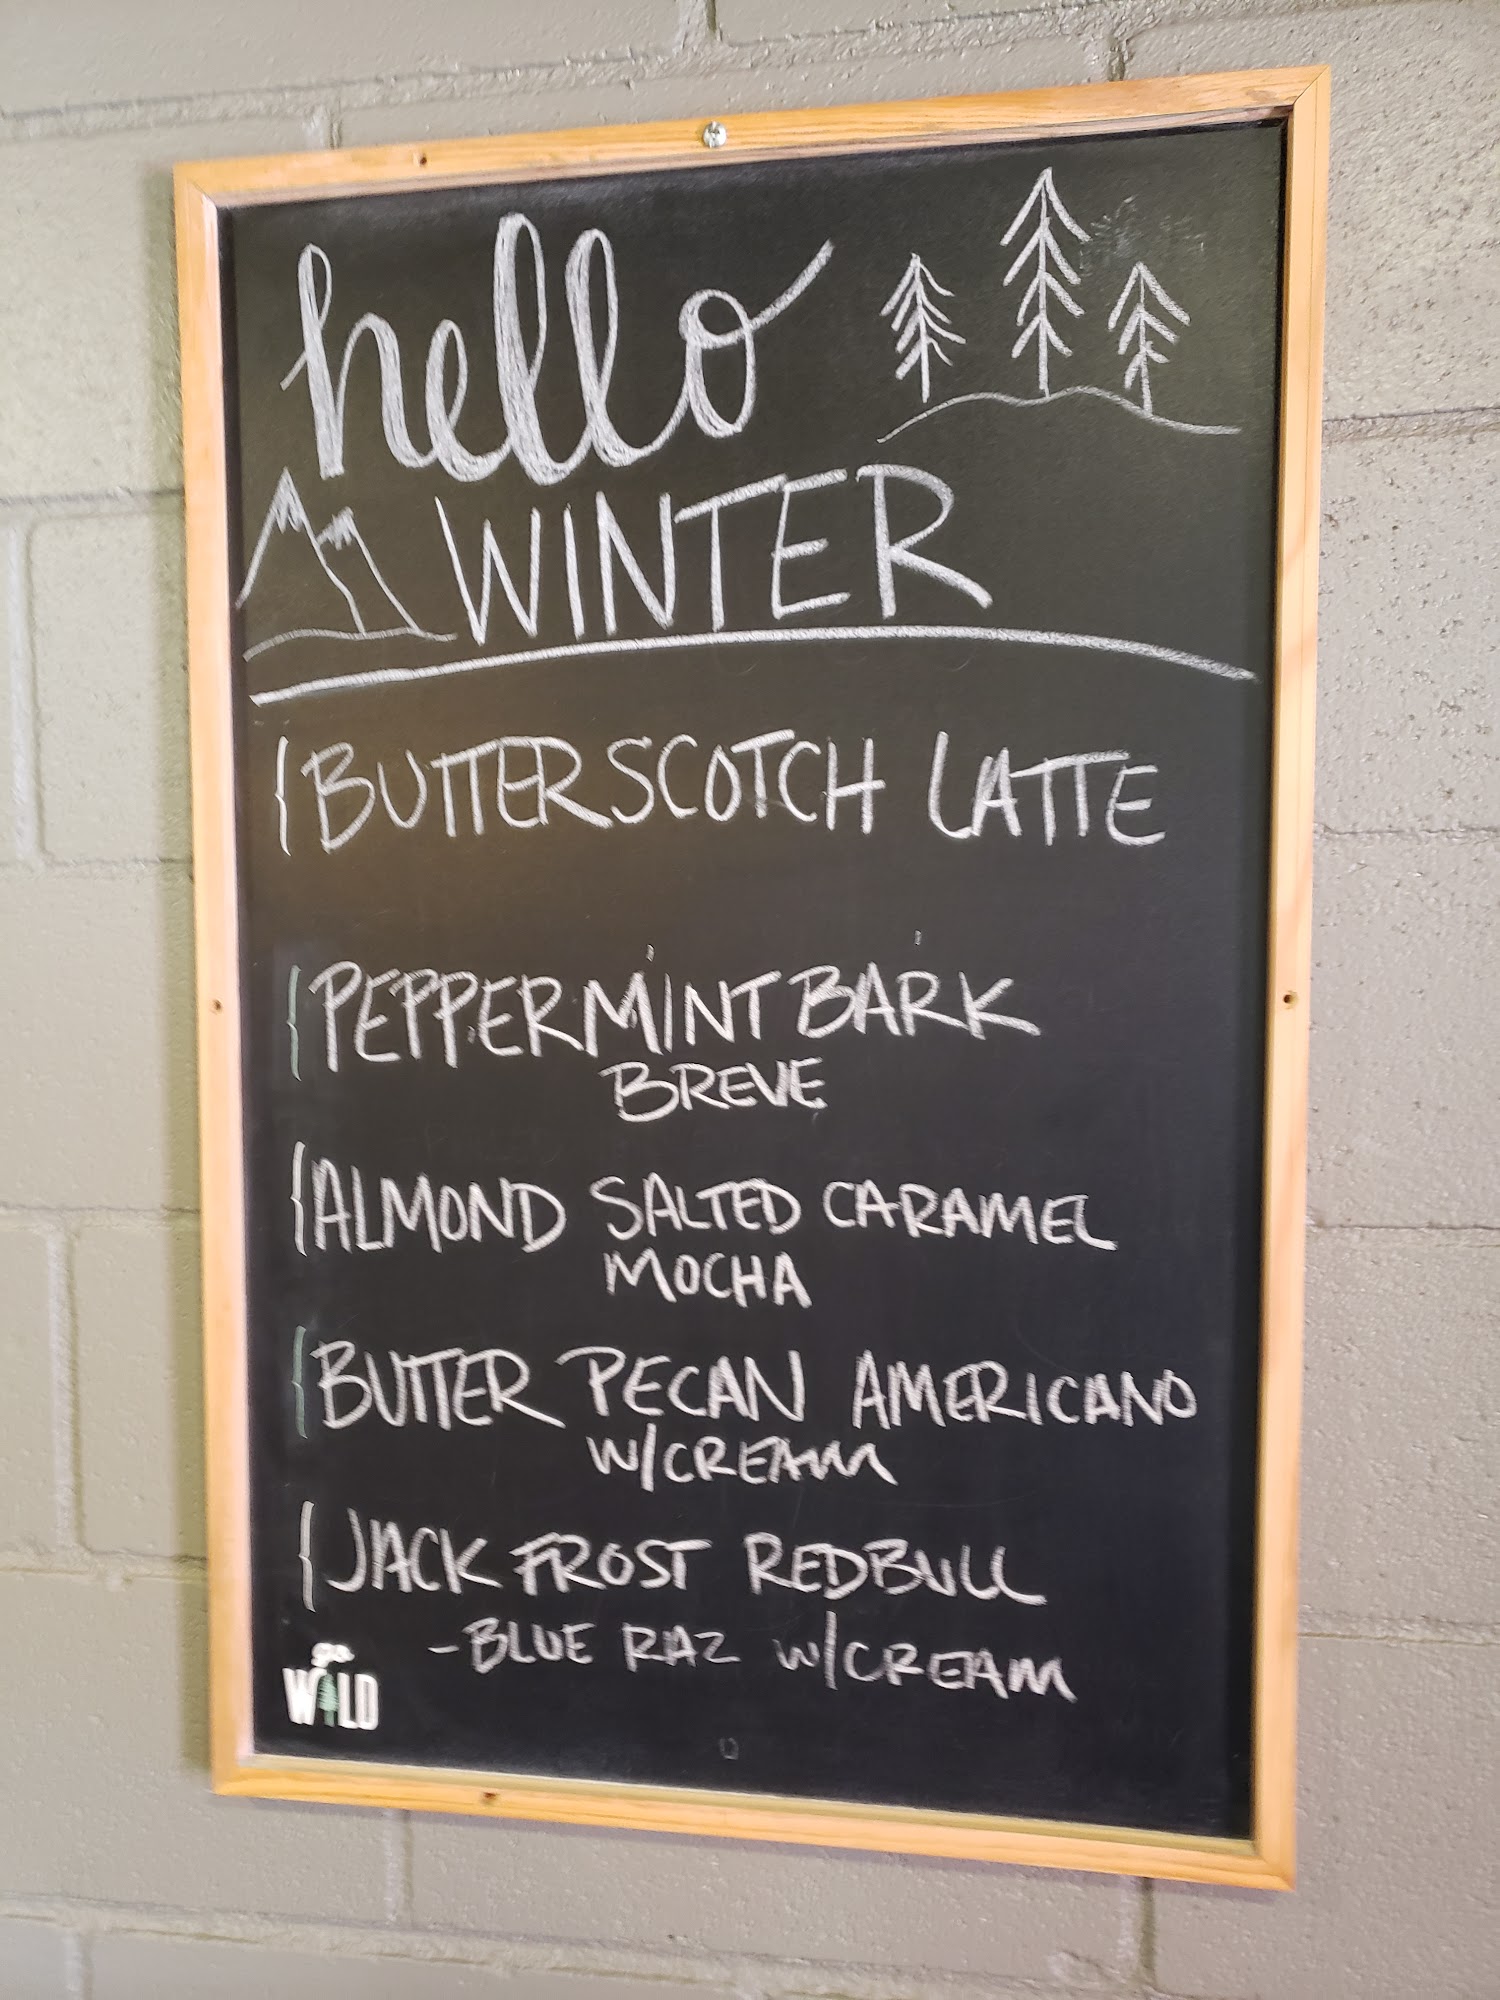 hello
WINTER
{BUTTERSCOTCH LATTE
{PEPPERMINT BARK
BREVE
{ALMOND SALTED CARAMEL
MOCHA
{BUTTER PECAN AMERICANO
W/CREAM
{JACK FROST REDBULL
-BLUE RAZ W/CREAM
go
WILD